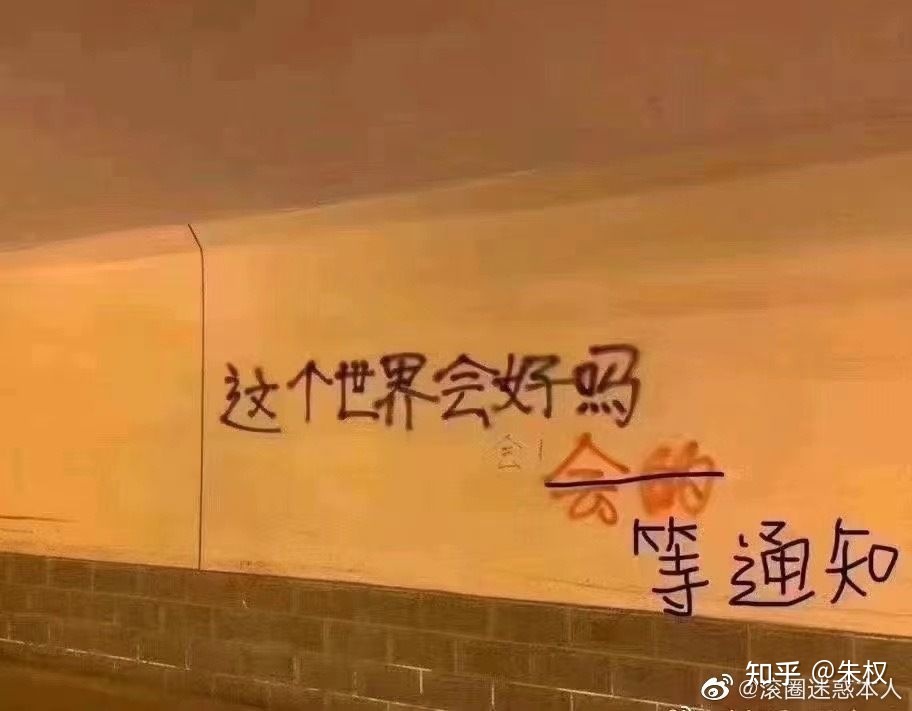 这个世界会好吗
会!
会的
等通知
知乎 @朱权
@滚圈迷惑本人